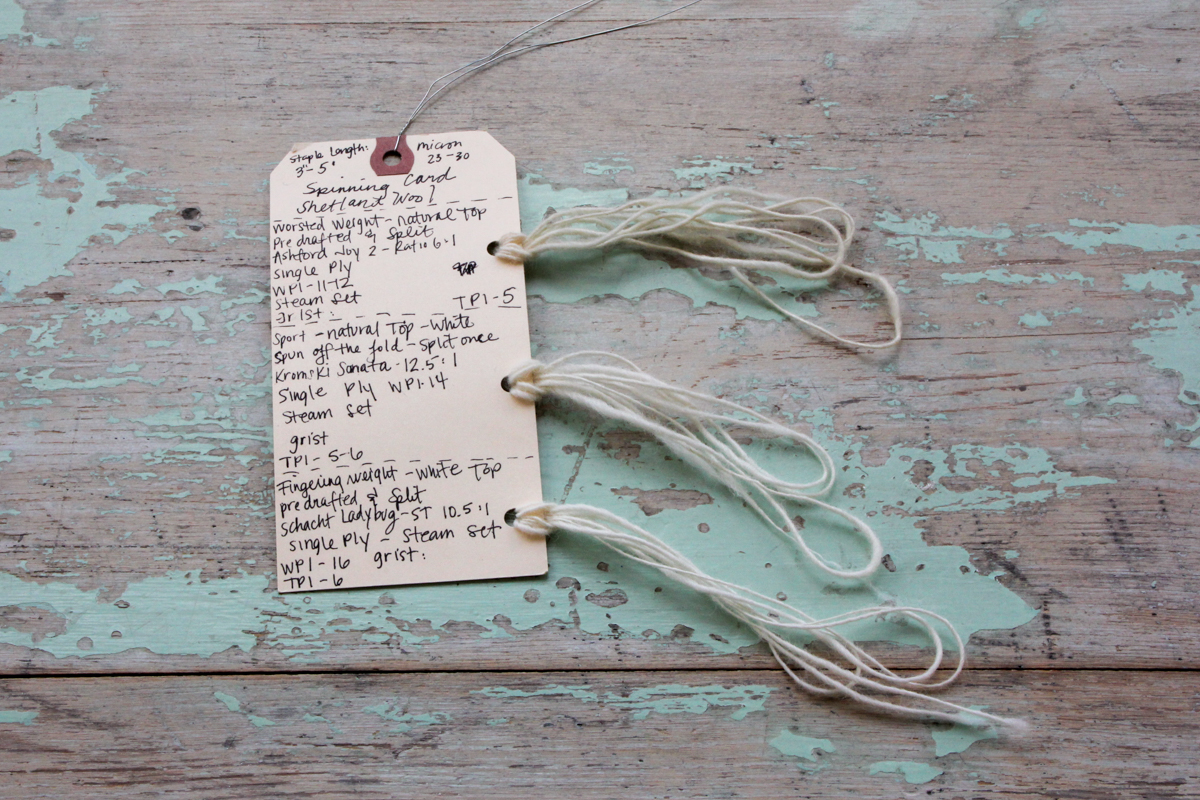 Staple Length: micron
3"-5" 23-30
Spinning Card
Shetland Wool
Worsted Weight - natural Top
Pre drafted & Split
Ashford Joy 2 - Ratio 6:1
Single Ply
WPI-11-12
Steam Set
Grist: TPI-5
Sport - natural Top - White
Spun off the fold - Split once
Kromski Sonata - 12.5:1
Single Ply WPI-14
Steam Set
grist
TPI-5-6
Fingering weight - White Top
pre drafted & Split
Schacht Ladybug - ST 10.5:1
Single Ply - Steam Set
WPI-16 grist:
TPI-6